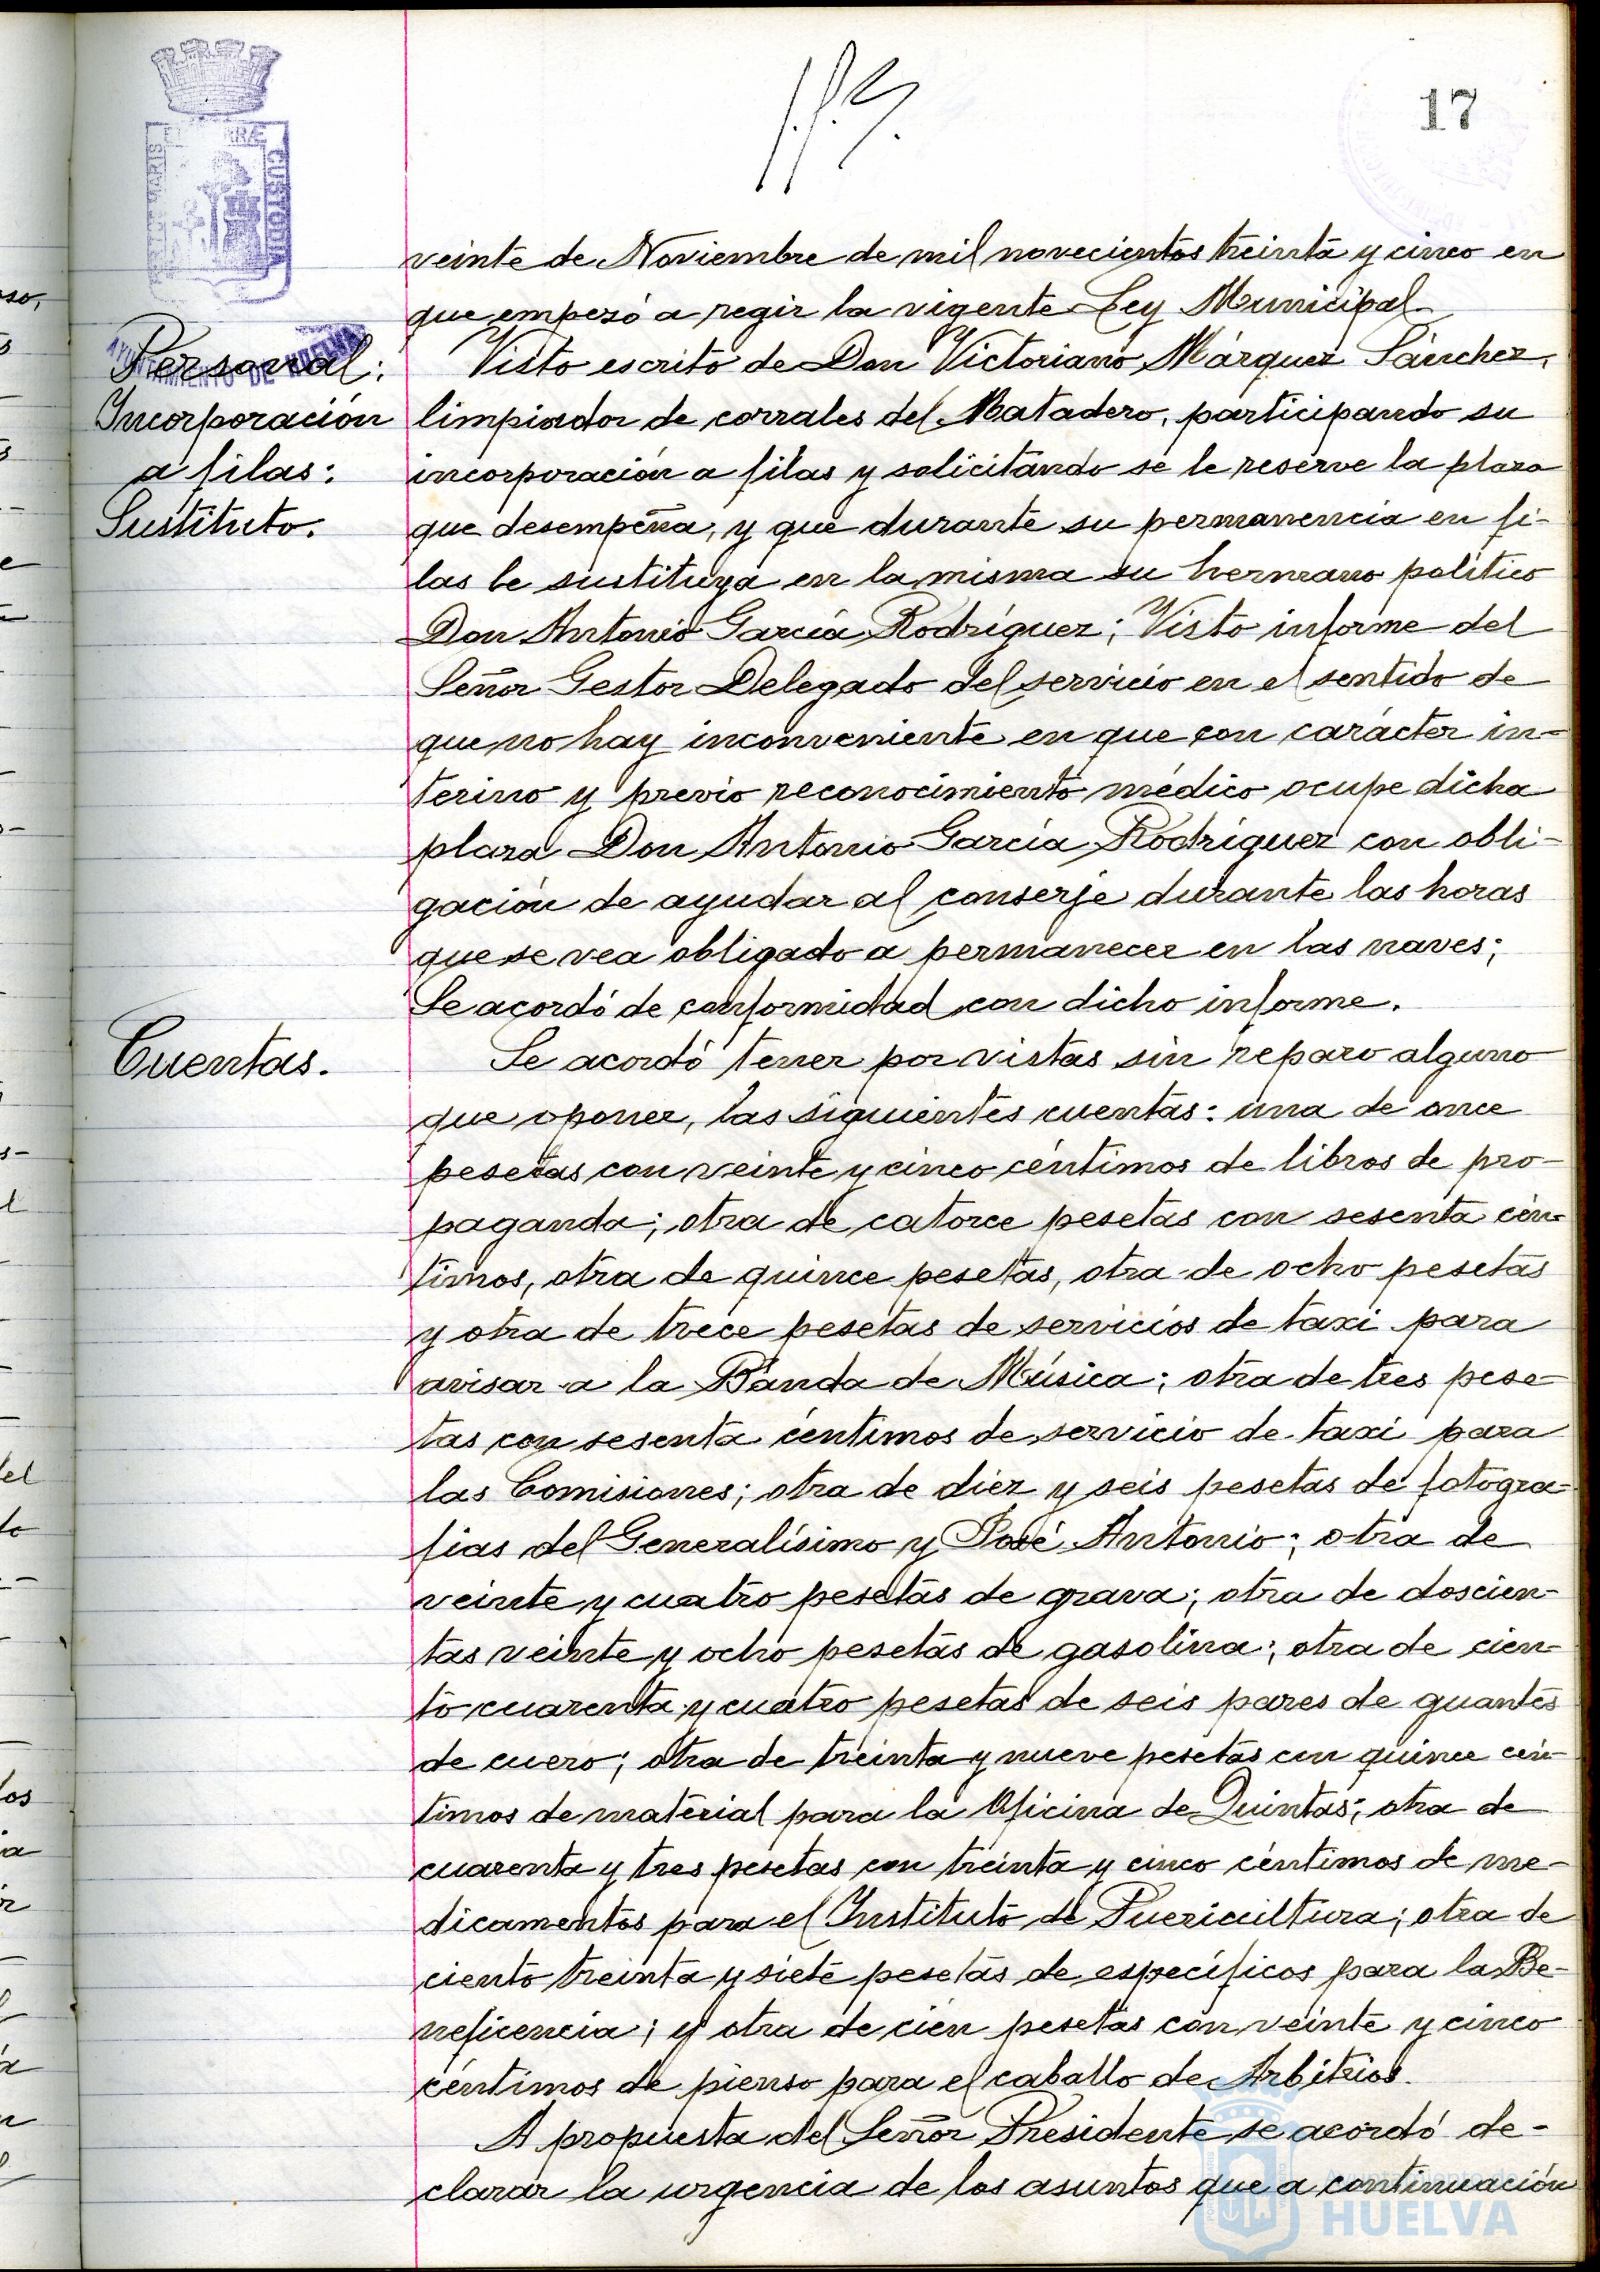 17
veinte de Noviembre de mil novecientos treinta y cinco en
que empezó a regir la vigente Ley Municipal.
Personal:
Incorporación
a filas:
Sustituto.
Visto escrito de Don Victoriano Márquez Sánchez,
limpiador de corrales del Matadero, participando su
incorporación a filas y solicitando se le reserve la plaza
que desempeña, y que durante su permanencia en fi-
las le sustituya en la misma su hermano político
Don Antonio García Rodríguez; Visto informe del
Señor Gestor Delegado del servicio en el sentido de
que no hay inconveniente en que con carácter in-
terino y previo reconocimiento médico ocupe dicha
plaza Don Antonio García Rodríguez con obli-
gación de ayudar al conserje durante las horas
que se vea obligado a permanecer en las naves;
Se acordó de conformidad con dicho informe.
Cuentas.
Se acordó tener por vistas sin reparo alguno
que oponer, las siguientes cuentas: una de once
pesetas con veinte y cinco céntimos de libros de pro-
paganda; otra de catorce pesetas con sesenta cén-
timos, otra de quince pesetas, otra de ocho pesetas
y otra de trece pesetas de servicios de taxi para
avisar a la Banda de Música; otra de tres pese-
tas con sesenta céntimos de servicio de taxi para
las Comisiones; otra de diez y seis pesetas de fotogra-
fias del Generalísimo y José Antonio; otra de
veinte y cuatro pesetas de grava; otra de doscien-
tas veinte y ocho pesetas de gasolina; otra de cien-
to cuarenta y cuatro pesetas de seis pares de guantes
de cuero; otra de treinta y nueve pesetas con quince cén-
timos de material para la Oficina de Quintas; otra de
cuarenta y tres pesetas con treinta y cinco céntimos de me-
dicamentos para el Instituto de Puericultura; otra de
ciento treinta y siete pesetas de específicos para la Be-
neficencia; y otra de cien pesetas con veinte y cinco
céntimos de pienso para el caballo de Arbitrios.
A propuesta del Señor Presidente se acordó de-
clarar la urgencia de los asuntos que a continuación
AYUNTAMIENTO DE HUELVA
Ayuntamiento de
HUELVA